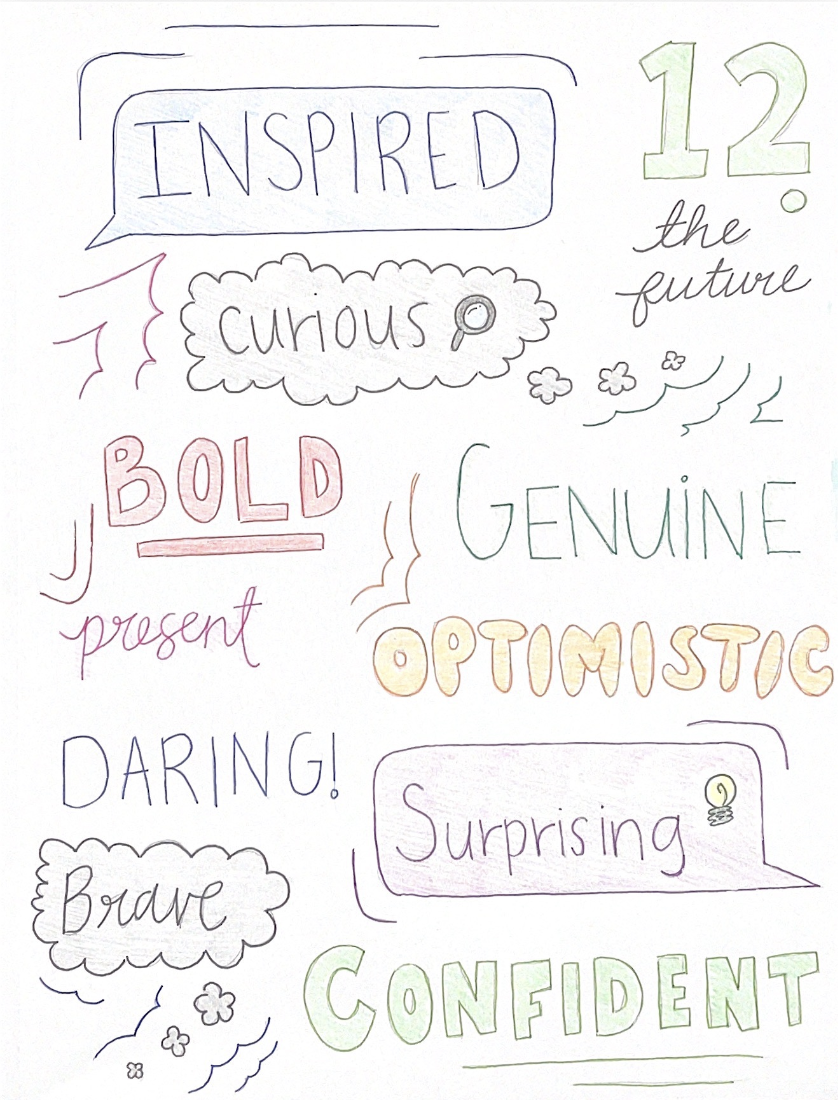 INSPIRED
12.
the
future
curious
BOLD
GENUiNE
present
OPTIMISTIC
DARING!
Surprising
Brave
CONFIDENT